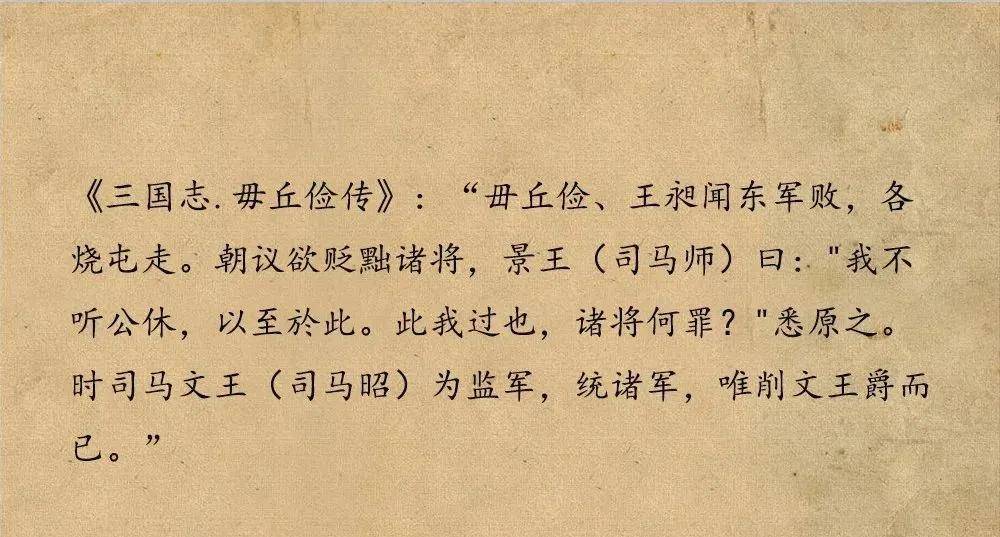 《三国志.毋丘俭传》：“毌丘俭、王昶闻东军败，各
烧屯走。朝议欲贬黜诸将，景王（司马师）曰："我不
听公休，以至於此。此我过也，诸将何罪？"悉原之。
时司马文王（司马昭）为监军，统诸军，唯削文王爵而
已。”